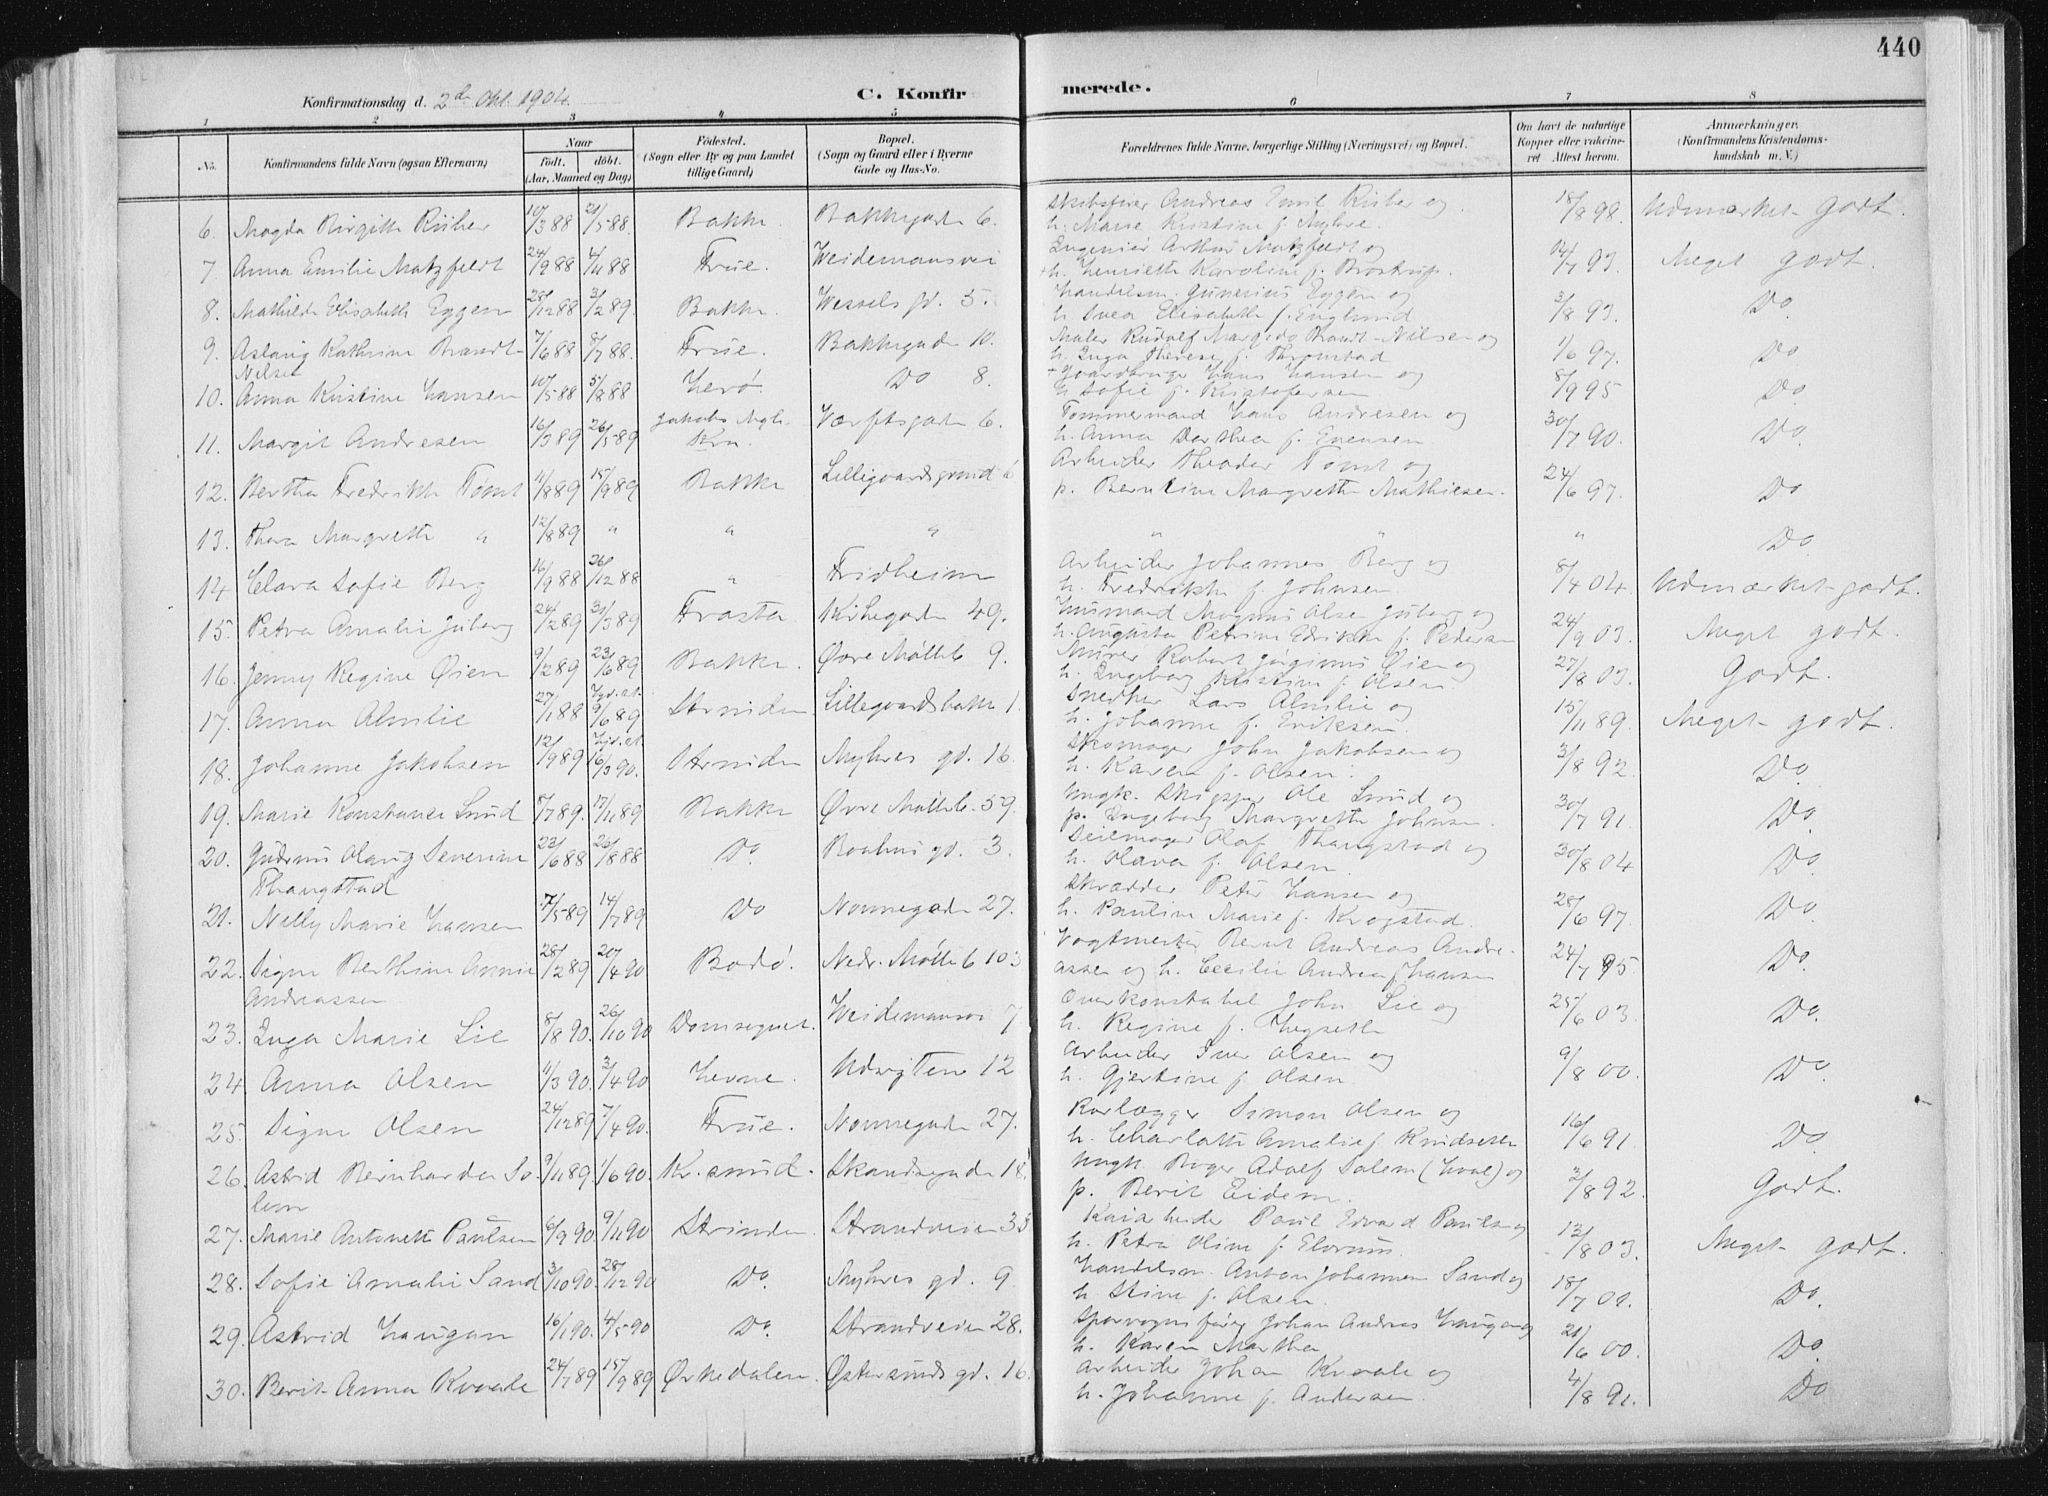 440
Konfirmationsdag d. 2den Okt. 1904.
C. Konfirmerede.
1 2 3 4 5 6 7 8
No.
Konfirmandens fulde Navn (ogsaa Efternavn)
Naar
født. døbt.
(Aar, Maaned og Dag)
Fødested.
(Sogn eller By og paa Landet
tillige Gaard)
Bopæl.
(Sogn og Gaard eller i Byerne
Gade og Hus-No.
Forældrenes fulde Navne, borgerlige Stilling (Næringsvei) og Bopæl.
Om havt de naturlige
Kopper eller vakcine-
ret Attest herom.
Anmærkninger.
(Konfirmandens Kristendoms-
kundskab m. V.)
6. Magda Birgitte Riiber 10/3 88 21/5 88. Bakke. Bakkegaden 6. Skibsfører Andreas Emil Riiber og 18/8 98. Udmærket godt.
h. Marie Kristine f. Myhre.
7. Anna Emilie Matzfeldt 24/9 88 4/11 88 Frue. Weidemansvei Ingeniør Arthur Matzfeldt og 14/7 93. Meget godt.
h. Henriette Karoline f. Brostrup.
8. Mathilde Elisabeth Eggen 28/12 88 3/2 89. Bakke. Wessels gd. 5. Handelsm. Gunerius Eggen og 3/8 93. Do.
h. Svea Elisabeth f. Englund
9. Aslaug Kathrine Brandt- 7/6 88 8/7 88. Frue. Bakkegaden 10. Maler Rudolf Margido Brandt-Nilsen og 1/6 97. Do
Nilsen h. Inga Therese f. Thronstad
10. Anna Kristine Hansen 10/5 88 5/8 88 Herø. Do 8. Gaardbruger Hans Hansen og 8/9 95 Do.
h Sofie f. Kristofersen
11. Margit Andresen 16/3 89 26/5 89 Jakobs Mgh. Værftsgaden 6. Tømmermand Hans Andresen og 30/7 90. Do.
Kra. h. Anna Dorthea f. Evensen
12. Bertha Fredrikke Tømt 11/8 89 15/9 89 Bakke Lillegaardsgrund 6 Arbeider Theodor Tømt og 24/6 97. Do
p. Berntine Margrethe Mathiesen.
13. Thora Margrethe " 12/8 89 " " " " " " Do.
14 Clara Sofie Berg 16/9 88 26/12 88 " Fridheim Arbeider Johannes Berg og 8/4 04. Udmærket godt.
h. Fredrikke f. Johnsen.
15. Petra Amalie Juberg 24/2 89 31/3 89 Frosta Kirkegaden 49. Husmand Magnus Olsen Juberg og 24/9 03. Meget godt.
h. Augusta Petrine Edrikke f. Pedersen
16. Jenny Regine Øien 9/3 89 23/6 89 Bakke. Øvre Møllebg. 9. Murer Robert Jørginus Øien og 27/8 03. Godt.
h. Ingeborg Kristine f. Olsen.
17. Anna Almlie 27/1 88 9/6 89 Strinden Lillegaardsbakke 1. Snedker Lars Almlie og 15/11 89. Meget godt.
h. Johanne f. Eriksen.
18. Johanne Jakobsen 12/9 89 16/3 90. Strinden Myhres gd. 16. Skomager John Jakobsen og 3/8 92. Do.
h. Karen f. Olsen.
19. Marie Konstanse Lund 5/7 89. 17/11 89 Bakke Øvre Møllebg. 59 Ungk. Skipper Ole Lund og 30/7 91. Do.
p. Ingeborg Margrethe Johnsen.
20. Gudrun Olaug Severine 23/6 88 26/8 88 Do. Baahus gd. 3. Seilmager Olaf Thangstad og 30/8 04 Do.
Thangstad h. Olava f. Olsen.
21. Nelly Marie Hansen 7/5 89 14/7 89 Do Nonnegaden 27. Skrædder Peter Hansen og 28/6 97. Do.
h. Pauline Marie f. Krogstad.
22. Signe Berthine Annie 28/12 89 20/4 90 Bodø. Nedr. Møllebg 103 Vogtmester Bernt Andreas Andre- 24/7 95 Do.
Andreassen assen og h. Cecilie Andrea f. Hansen
23. Inga Marie Lie 8/8 90. 26/10 90 Domsognet. Weidemansvei 7 Overkonstabel John Lie og 25/6 03. Do.
h. Regine f. Hegseth
24. Anna Olsen 11/3 90. 3/4 90 Hevne. Udsigten 12 Arbeider Iver Olsen og 9/8 00. Do.
h. Gjertine f. Olsen
25. Signe Olsen 24/12 89 7/4 90. Frue. Nonnegaden 27. Rørlægger Simon Olsen og 16/6 91. Do.
h. Charlotte Amalie f. Knudsen
26. Astrid Bernharda So- 9/11 89. 1/6 90. Kr. sund. Skansegaden 18. Ungk. Roger Adolf Solem (Hval) og 2/8 92. Godt.
lem p. Berit Eidem.
27. Marie Antonette Paulsen 6/9 90. 9/11 90 Strinden Strandveien 35 Kaiarbeider Paul Edvard Paulsen og 13/8 03. Meget godt.
h. Petra Oline f. Elvrum.
28. Sofie Amalie Sand 3/10 90. 28/12 90 Do. Myhres gd. 9. Handelsm. Anton Johannesen Sand og 18/7 01. Do.
h. Stine f. Olsen.
29. Astrid Haugan 16/1 90. 4/5 90 Do. Strandveien 28. Sporvognsfører Johan Andreas Haugan og 21/6 00. Do.
h. Karen Martha
30. Berit Anna Kvaale 24/7 89 15/9 89 Ørkedalen. Østersunds gd. 16. Arbeider Johan Kvaale og 4/8 91. Do
h. Johanne f. Andersen.